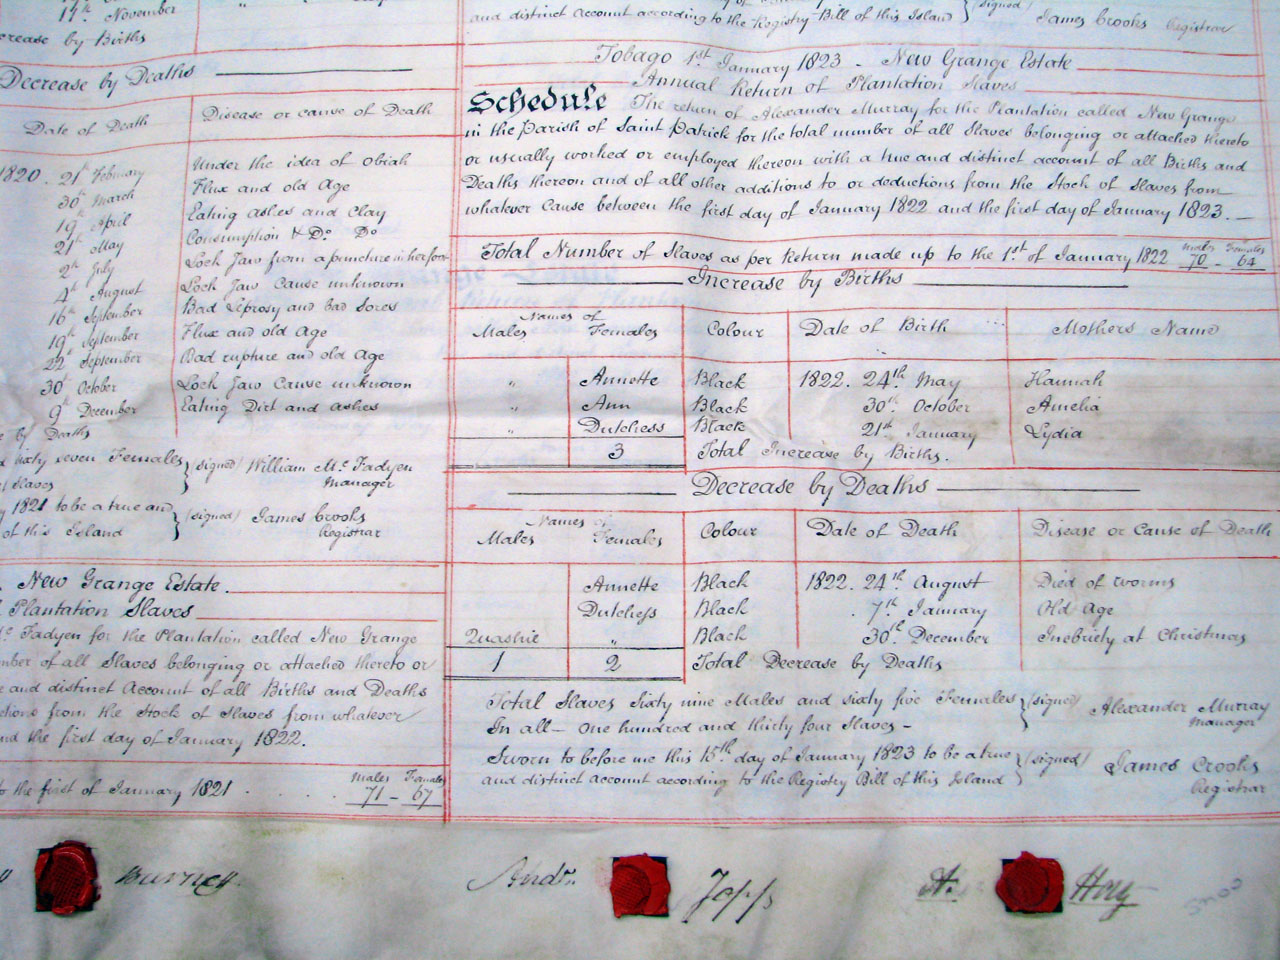 17th November "
crease by Births
Decrease by Deaths
Date of Death Disease or cause of Death
1820. 21st February Under the idea of obiah
30th March Flux and old Age
19th April Eating ashes and Clay
21st May Consumption & Do. Do
2nd July Lock Jaw from a puncture in her foot
4th August Lock Jaw Cause unknown
16th September Bad Leprosy and bad Sores
19th September Flux and old Age
22nd September Bad rupture and old Age
30th October Lock Jaw Cause unknown
9th December Eating Dirt and ashes
e by Deaths
d sixty seven Females (signed) William Mc. Fadyen
Slaves Manager
y 1821 to be a true and (signed) James Crooks
of this Island Registrar
. New Grange Estate.
Plantation Slaves
Mc. Fadyen for the Plantation called New Grange
mber of all Slaves belonging or attached thereto or
e and distinct Account of all Births and Deaths
ctions from the Stock of Slaves from whatever
nd the first day of January 1822.
Males Females
to the first of January 1821 71 - 67
and distinct Account according to the Registry Bill of this Island (signed) James Crooks
Registrar
Tobago 1st January 1823 - New Grange Estate
Annual Return of Plantation Slaves
Schedule The return of Alexander Murray for the Plantation called New Grange
in the Parish of Saint Patrick for the total number of all Slaves belonging or attached thereto
or usually worked or employed thereon with a true and distinct account of all Births and
Deaths thereon and of all other additions to or deductions from the Stock of Slaves from
whatever Cause between the first day of January 1822 and the first day of January 1823. —
Males Females
Total Number of Slaves as per Return made up to the 1st of January 1822 70 - 64
Increase by Births
Names of
Males Females Colour Date of Birth Mothers Name
" Annette Black 1822. 24th. May Hannah
" Ann Black 30th. October Amelia
" Dutchess Black 21st January Lydia
3 Total Increase by Births.
Decrease by Deaths
Names of
Males Females Colour Date of Death Disease or Cause of Death
Annette Black 1822. 24th August Died of worms
Dutchess Black 7th January Old Age
Quashie " Black 30th December Inebriety at Christmas
1 2 Total Decrease by Deaths
Total Slaves Sixty nine Males and sixty five Females (signed) Alexander Murray
In all - One hundred and thirty four Slaves - Manager
Sworn to before me this 15th day of January 1823 to be a true (signed) James Crooks
and distinct account according to the Registry Bill of this Island Registrar
Burnett
Andw. Jopp
A. Hoy